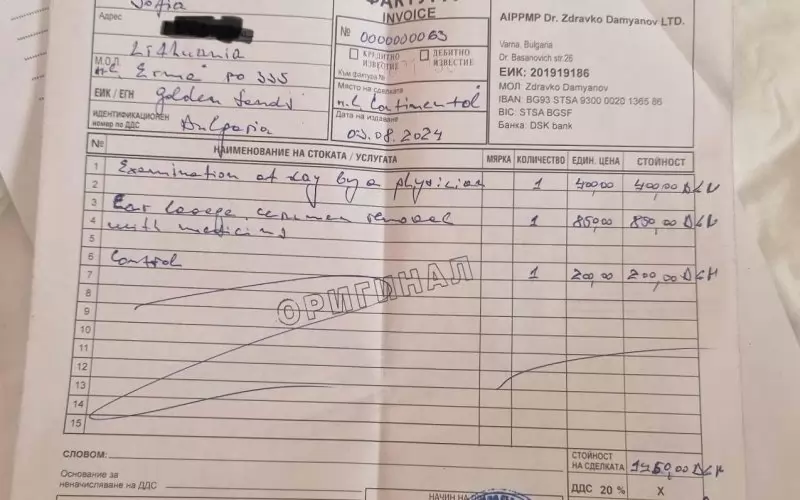 Sofia
Адрес
Lithuania
М.О.Л.
п.с Erma PO 335
ЕИК / ЕГН Golden Sands
ИДЕНТИФИКАЦИОНЕН
номер по ДДС
Bulgaria
INVOICE
№ 0000000063
КРЕДИТНО ИЗВЕСТИЕ
ДЕБИТНО ИЗВЕСТИЕ
Към фактура №
Място на сделката
Continental
Дата на издаване
03.08.2024
AIPPMP Dr. Zdravko Damyanov LTD.
Varna, Bulgaria
Dr. Basanovich str.26
ЕИК: 201919186
МОЛ Zdravko Damyanov
IBAN: BG93 STSA 9300 0020 1365 86
BIC: STSA BGSF
Банка: DSK bank
№ НАИМЕНОВАНИЕ НА СТОКАТА / УСЛУГАТА МЯРКА КОЛИЧЕСТВО ЕДИН. ЦЕНА СТОЙНОСТ
1 Examination at day by a physician
2 1 400,00 400,00
3 Ear cerumen removal
4 with 1 850,00 850,00
5
6 Control
7 1 200,00 200,00
8 ОРИГИНАЛ
9
10
11
12
13
14
15
СЛОВОМ:
СТОЙНОСТ НА СДЕЛКАТА 1450,00
Основание за
неначисляване на ДДС
ДДС 20 % X
НАЧИН НА